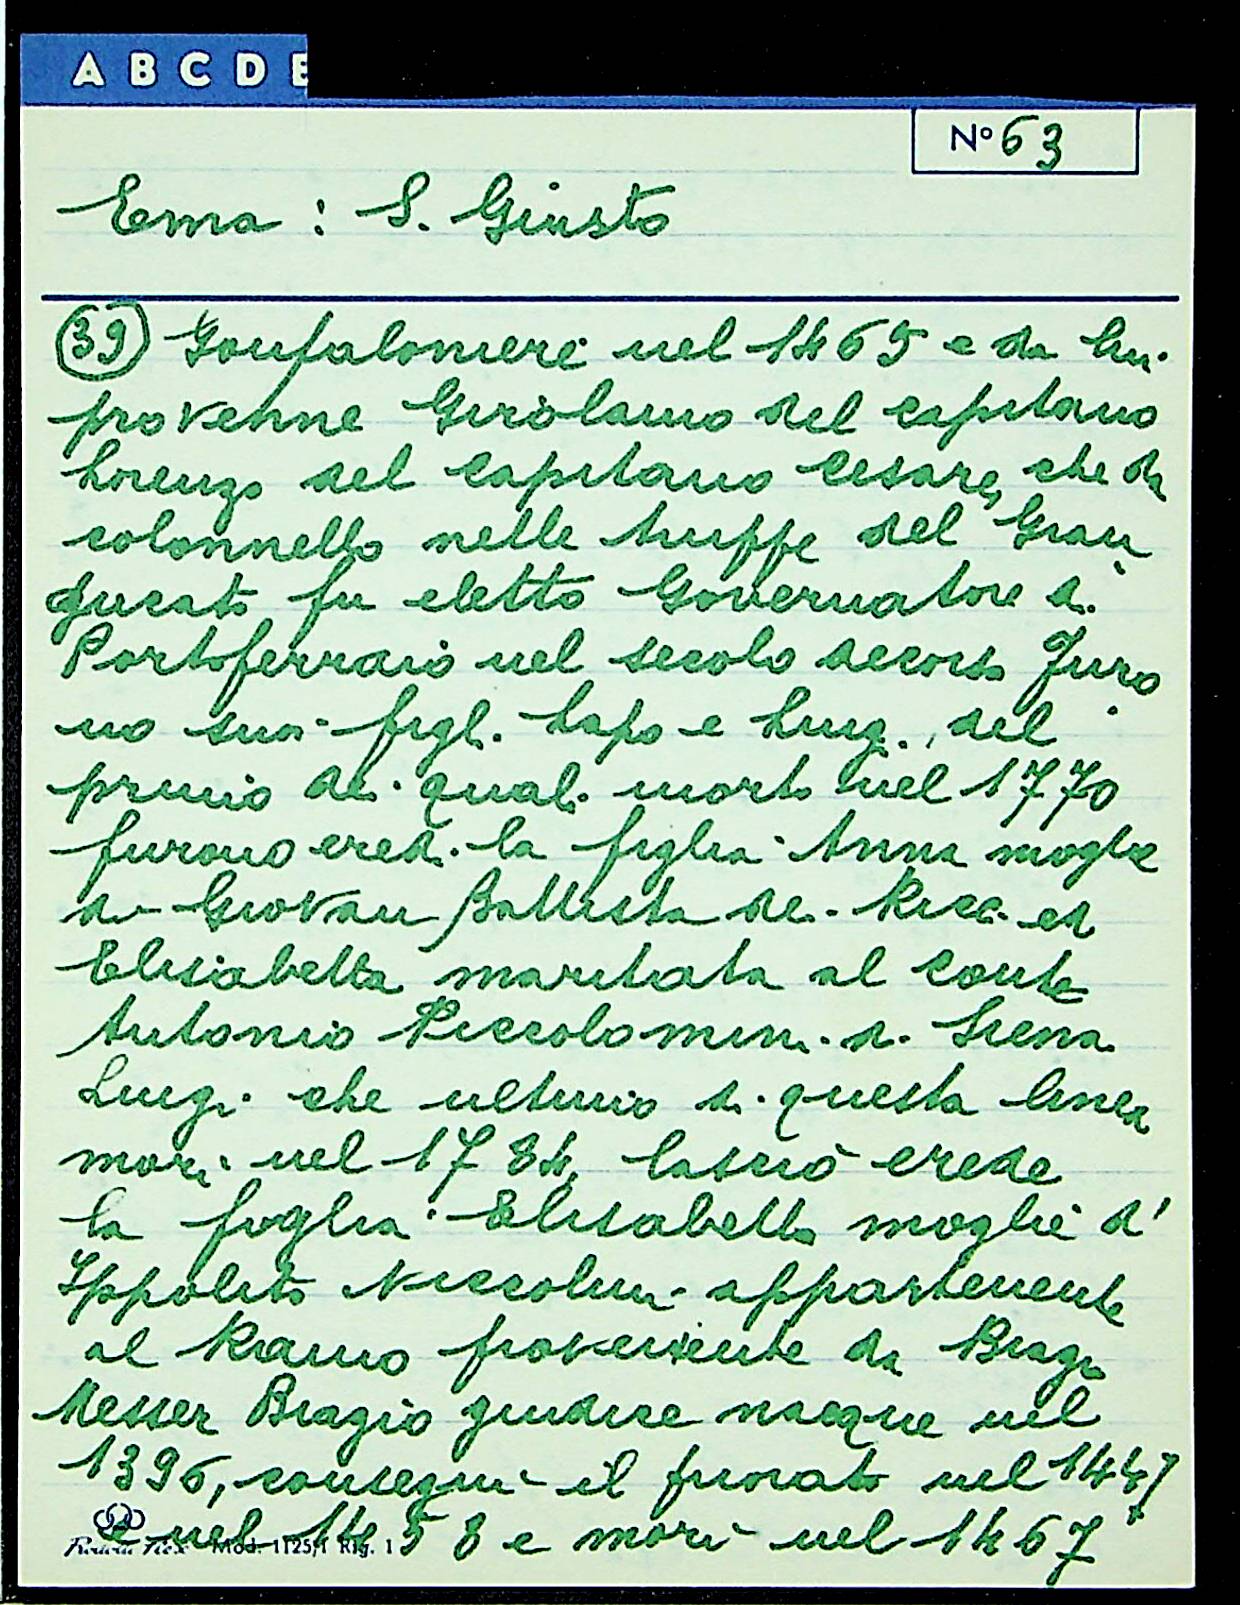 A B C D E
Nº 63
Ema : S. Giusto
(39) Gonfaloniere nel 1465 e da lui
provenne Girolamo del capitano
Lorenzo del capitano Cesare, che da
colonnello nelle truppe del Gran
ducato fu eletto Governatore di
Portoferraio nel secolo decorso Furo
no suoi figli Lapo e Luigi, del
primo dei quali morto nel 1770
furono eredi la figlia Anna moglie
di Giovan Battista de' Ricci ed
Elisabetta maritata al conte
Antonio Piccolomini di Siena
Luigi che ultimo di questa linea
morì nel 1784 lasciò erede
la figlia Elisabetta moglie d'
Ippolito Niccolini appartenente
al Ramo proveniente da Biagio
Messer Biagio giudice nacque nel
1396, conseguì il priorato nel 1447
e nel 1458 e morì nel 1467
Mod. 1125/1 Rig. 1